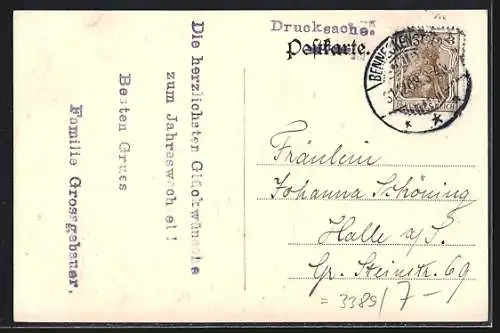 Drucksache.
Postkarte.
BENNECKENSTEIN
Die herzlichsten Glückwünsche
zum Jahreswechsel!
Besten Gruss
Familie Grossgebauer.
Fräulein
Johanna Schöning
Halle a/S.
Gr. Steinstr. 69
= 3389/7-